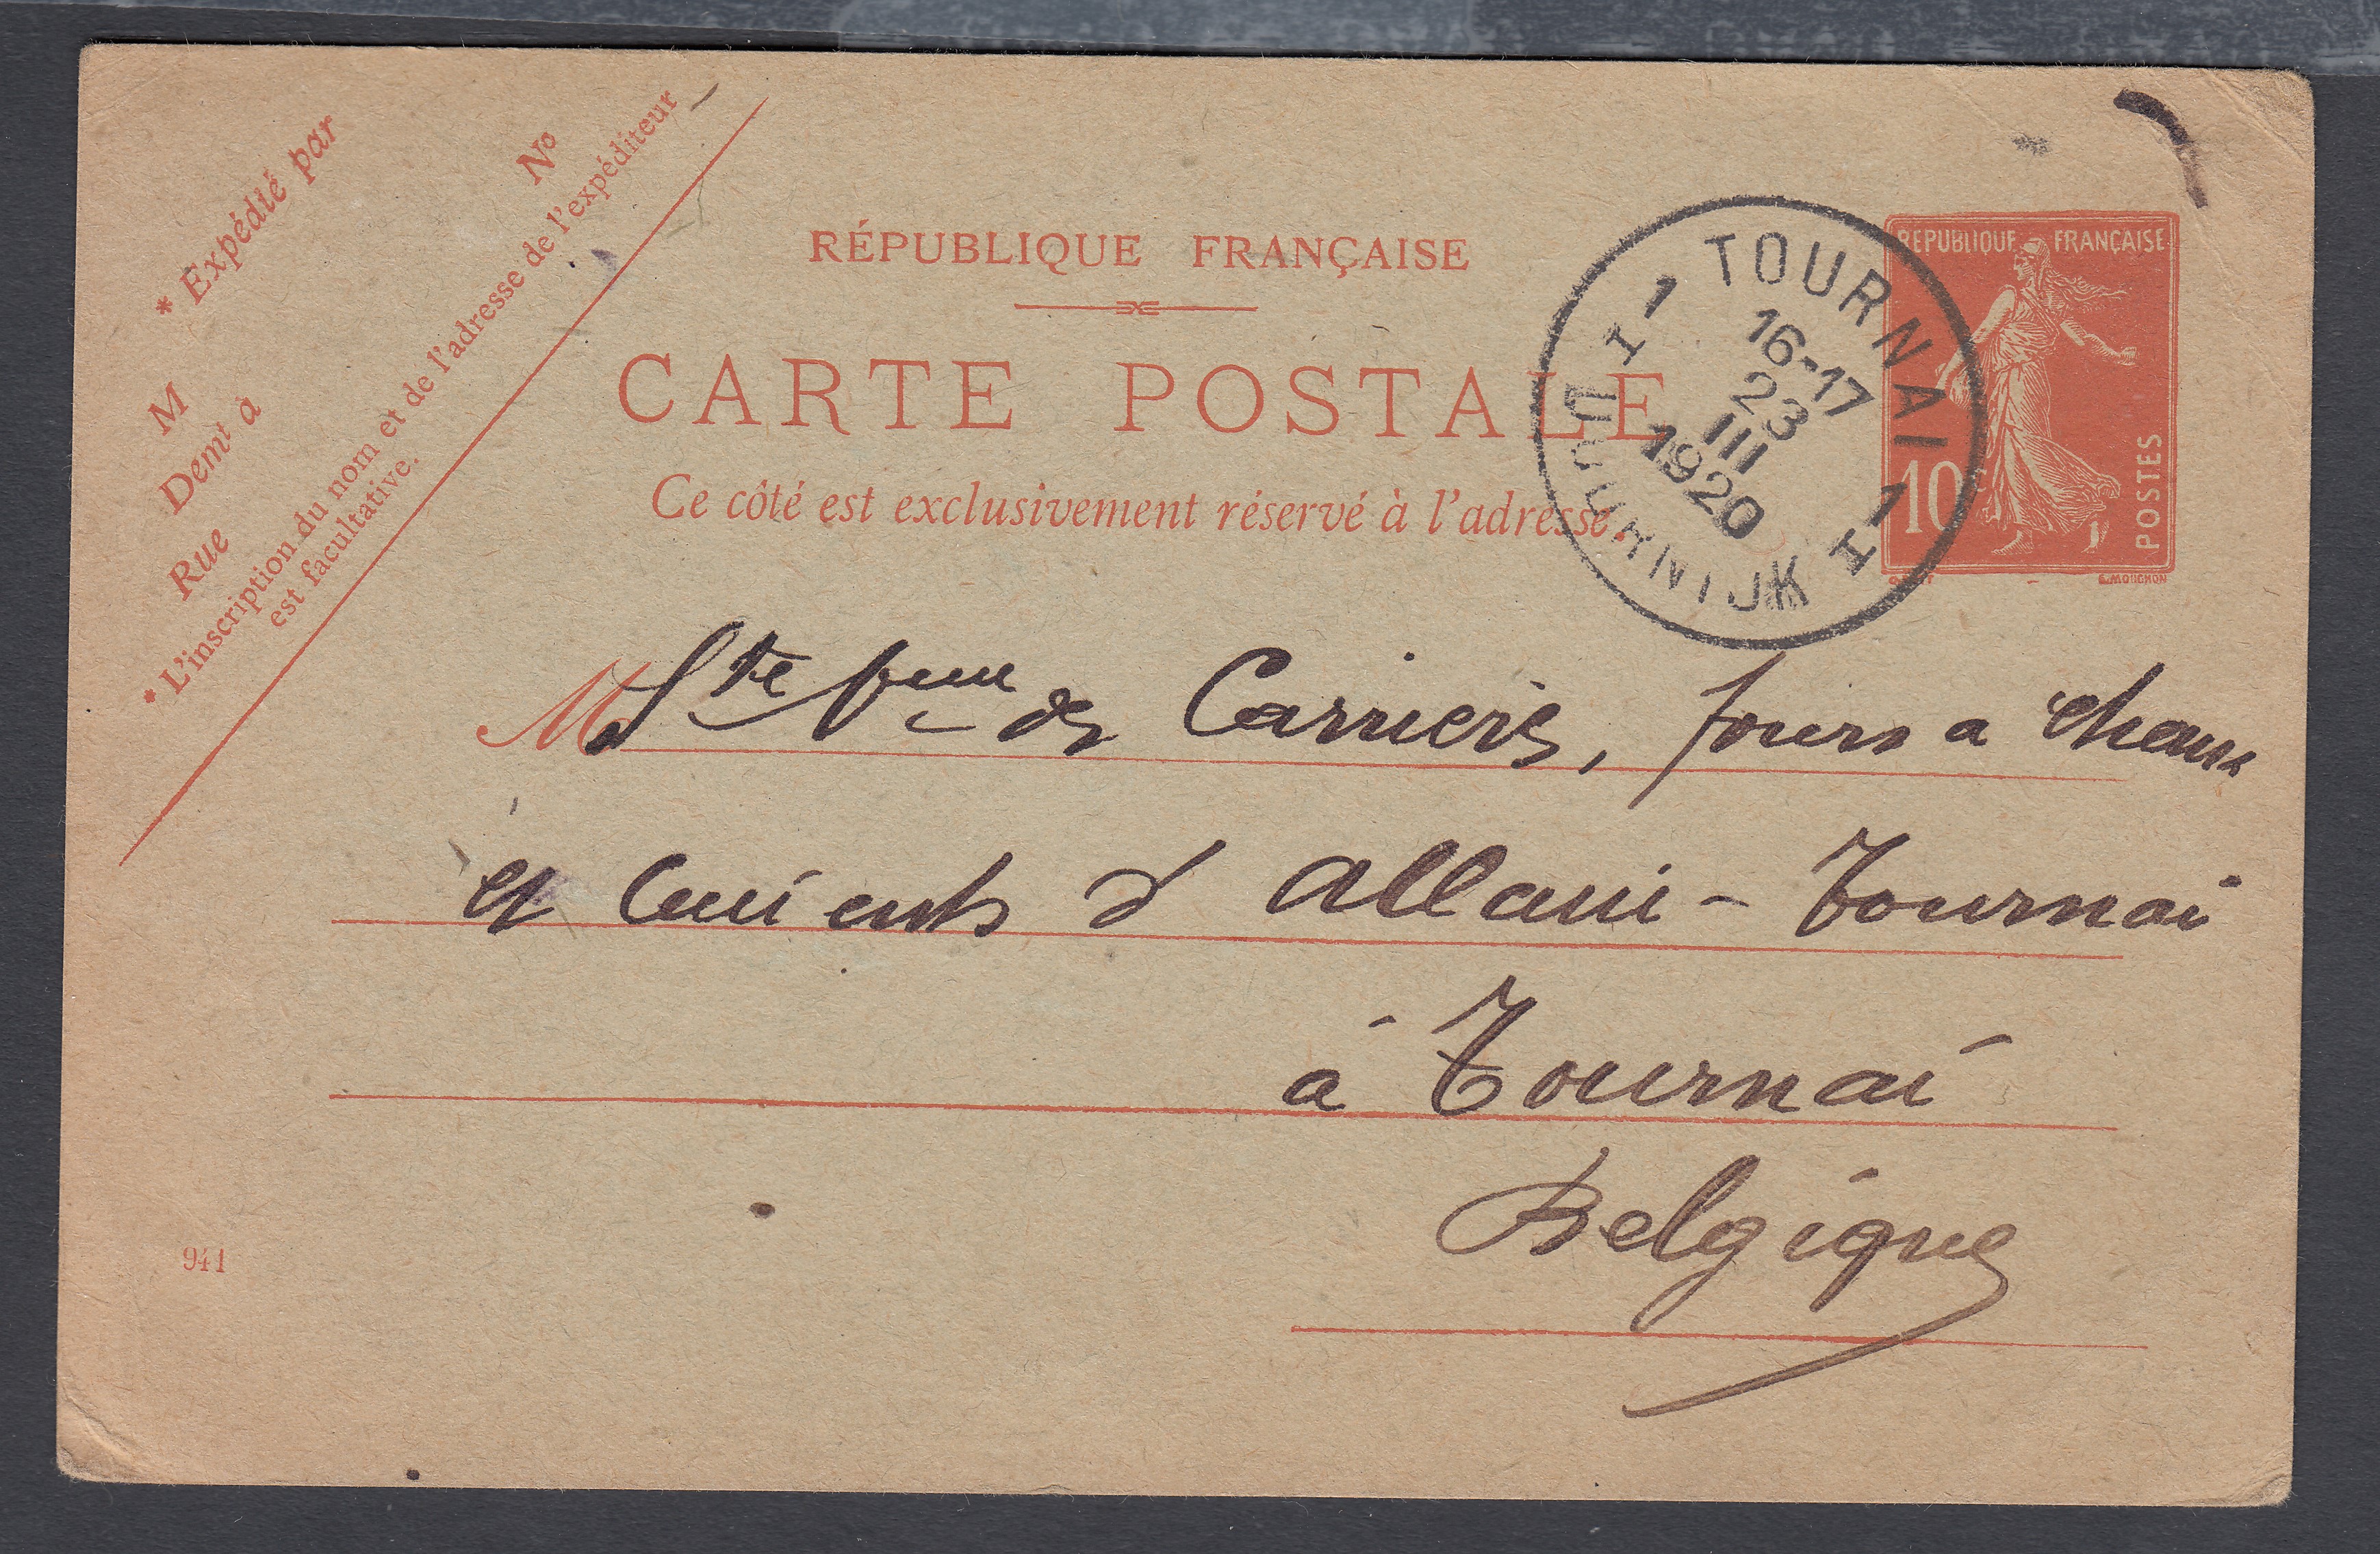 * Expédié par
N°
M
Demt à
Rue
* L'inscription du nom et de l'adresse de l'expéditeur
est facultative.
RÉPUBLIQUE FRANÇAISE
CARTE POSTALE
Ce côté est exclusivement réservé à l'adresse.
1 TOURNAI 1
I DOORNIJK I
16-17
23
III
1920
REPUBLIQUE FRANÇAISE
10
POSTES
E. MOUCHON
M Ste des Carrieres, fours a chaux
et Ciments d Allain - Tournai
à Tournai
Belgique
941